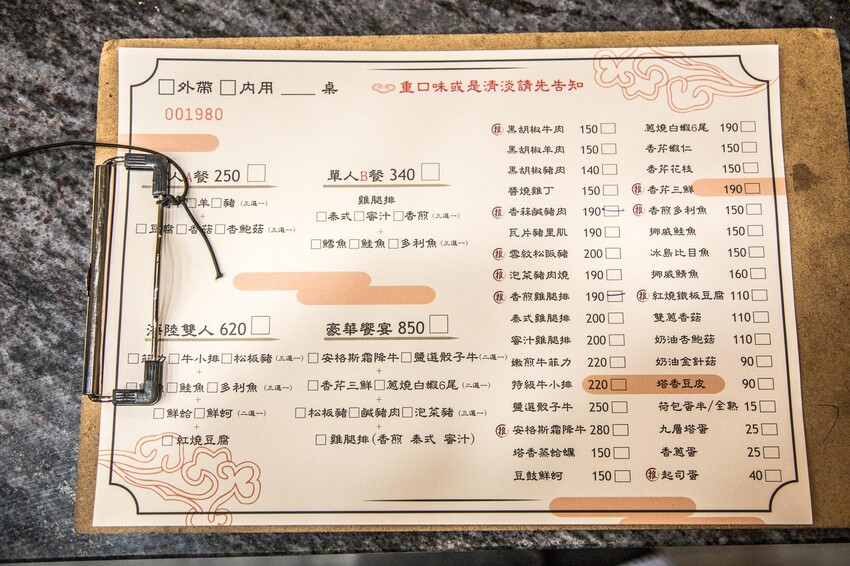 □外帶 □內用 ___ 桌
重口味或是清淡請先告知
001980
人A餐 250 □
□羊□豬(三選一)
+
□豆腐□香菇□杏鮑菇(三選一)
單人B餐 340 □
雞腿排
□泰式□蜜汁□香煎(三選一)
+
□鱈魚□鮭魚□多利魚(三選一)
海陸雙人 620 □
□菲力□牛小排□松板豬(三選一)
+
□鮭魚□多利魚(三選一)
+
□鮮蛤□鮮蚵(二選一)
+
□紅燒豆腐
豪華饗宴 850 □
□安格斯霜降牛□鹽選骰子牛(二選一)
+
□香芹三鮮□蔥燒白蝦6尾(二選一)
+
□松板豬□鹹豬肉□泡菜豬(三選一)
+
□雞腿排(香煎 泰式 蜜汁)
推 黑胡椒牛肉 150 □
黑胡椒羊肉 150 □
黑胡椒豬肉 140 □
醬燒雞丁 150 □
推 香蒜鹹豬肉 190 □
瓦片豬里肌 190 □
推 雪紋松阪豬 200 □
推 泡菜豬肉燒 190 □
推 香煎雞腿排 190 □
泰式雞腿排 200 □
蜜汁雞腿排 200 □
嫩煎牛菲力 220 □
特級牛小排 220 □
鹽選骰子牛 250 □
推 安格斯霜降牛 280 □
塔香蒸蛤蠣 150 □
豆鼓鮮蚵 150 □
蔥燒白蝦6尾 190 □
香芹蝦仁 150 □
香芹花枝 150 □
推 香芹三鮮 190 □
推 香煎多利魚 150 □
挪威鮭魚 150 □
冰島比目魚 150 □
挪威鯖魚 160 □
推 紅燒鐵板豆腐 110 □
雙蔥香菇 110 □
奶油杏鮑菇 110 □
奶油金針菇 90 □
塔香豆皮 90 □
荷包蛋半/全熟 15 □
九層塔蛋 25 □
香蔥蛋 25 □
推 起司蛋 40 □